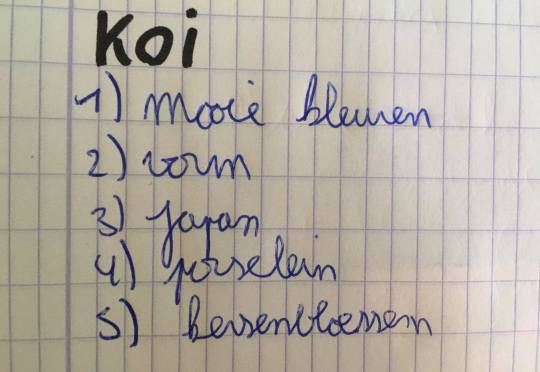 Koi
1) mooie kleuren
2) vorm
3) Japan
4) porselein
5) kersenbloesem